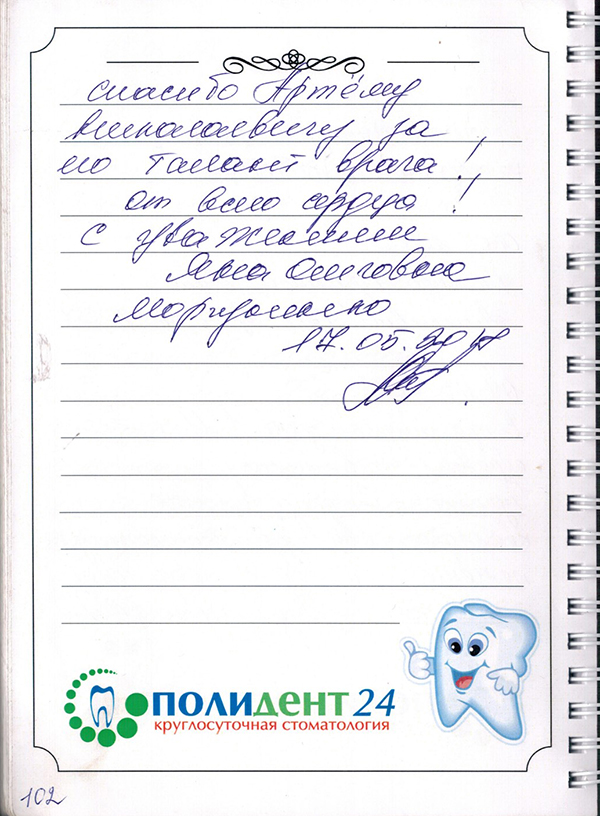 спасибо Артёму
Николаевичу за
его талант врача!
от всего сердца!
с уважением
Яна Олеговна
17.05.2017
ПОЛИДЕНТ 24
круглосуточная стоматология
102